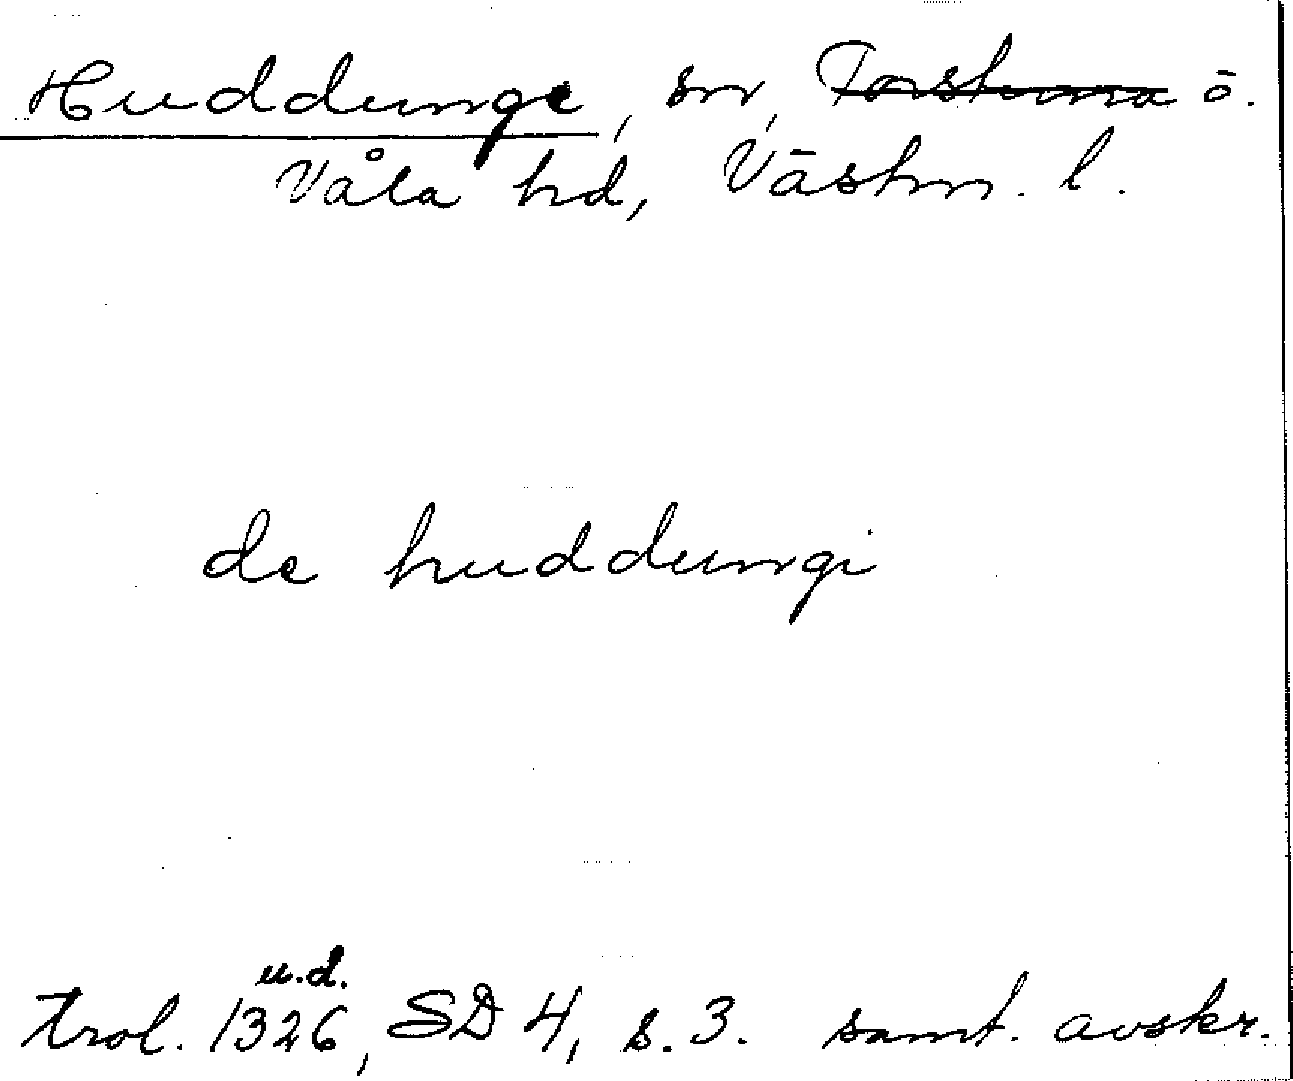 Huddunge, sn, Torstuna ö.
Våla hd, Västm. l.
de huddungi
u.d.
trol. 1326, SD 4, s. 3. samt. avskr.